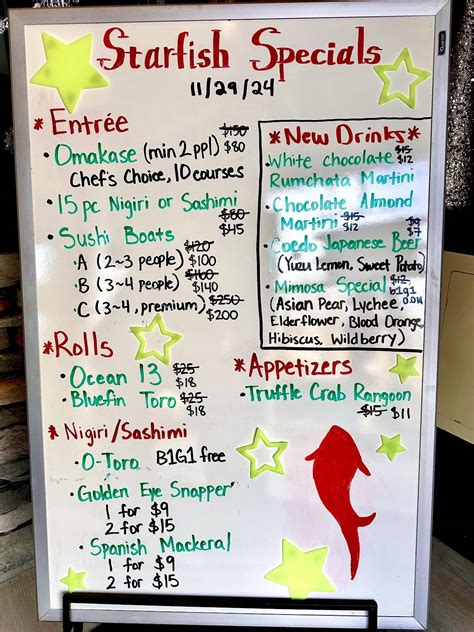 Starfish Specials
11/29/24
* Entrée
$150
• Omakase (min 2 ppl) $80
Chef's Choice, 10 courses
• 15 pc Nigiri or Sashimi
$80
$45
• Sushi Boats
$120
• A (2~3 people) $100
$160
• B (3~4 people) $140
• C (3~4, premium) $250
$200
* New Drinks *
• White chocolate $15 $12
Rumchata Martini
• Chocolate Almond
Martini $15 $12
$9
$7
• Coedo Japanese Beer
(Yuzu Lemon, Sweet Potato)
• Mimosa Special $12 b1g1
(Asian Pear, Lychee,
Elderflower, Blood Orange,
Hibiscus, Wildberry)
* Rolls
• Ocean 13 $25 $18
• Bluefin Toro $25 $18
* Appetizers
• Truffle Crab Rangoon
$15 $11
* Nigiri/Sashimi
• O-Toro B1G1 free
• Golden Eye Snapper
1 for $9
2 for $15
• Spanish Mackeral
1 for $9
2 for $15